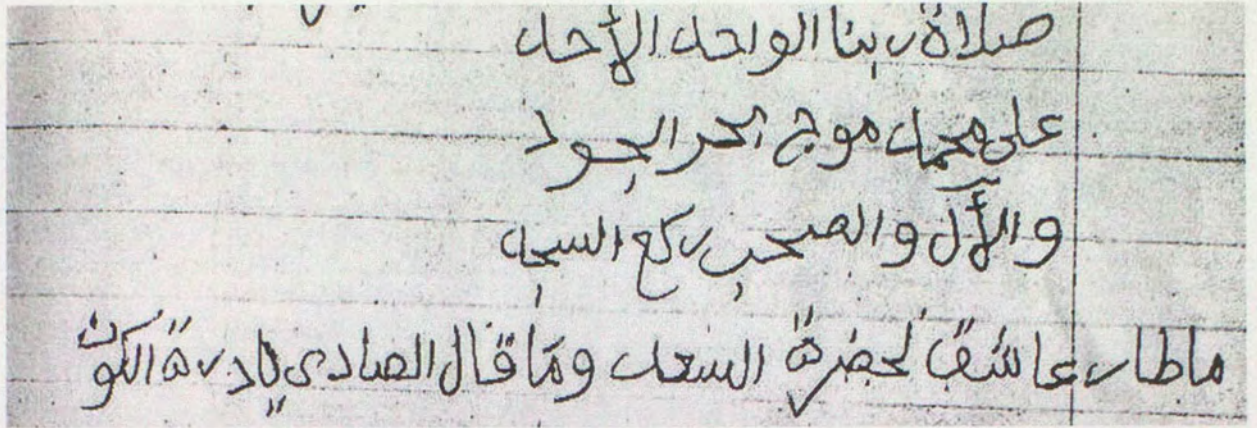 صلاة ربنا الواحد الأحد
على محمد موج البحر الجود
والآل والصحب ركع السجد
ما طار عاشق لحضرة السعد وما قال الصادي يا درة الكون